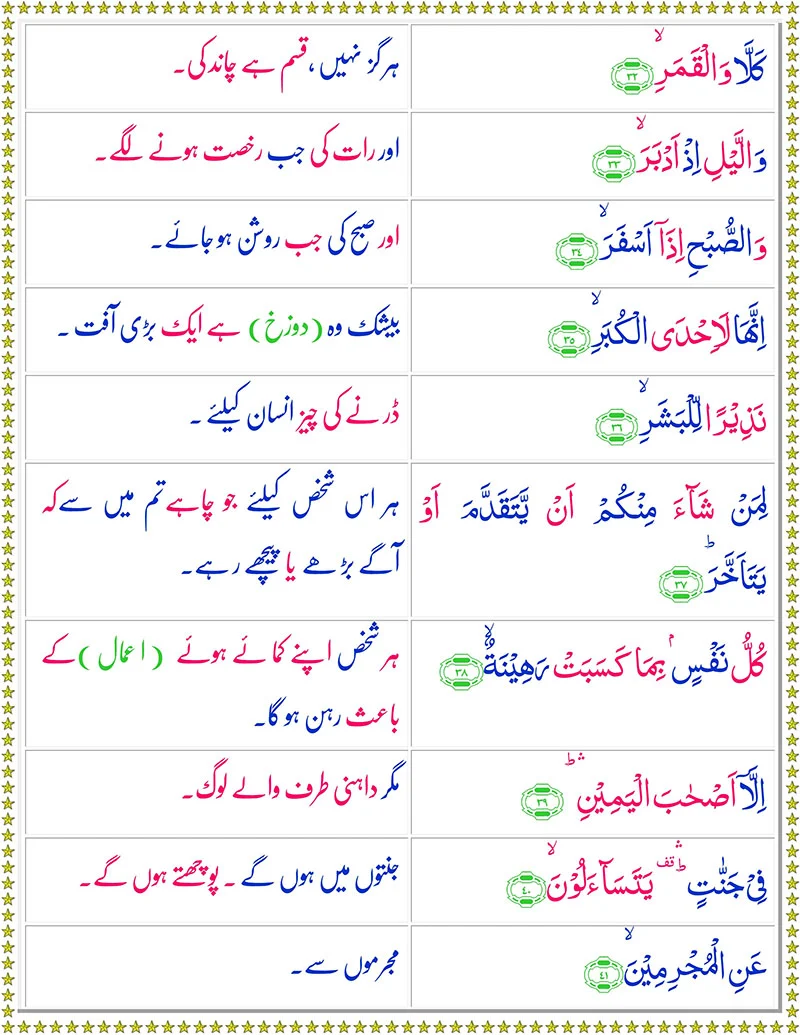 كَلَّا وَالْقَمَرِۙ ۳۲
ہرگز نہیں، قسم ہے چاند کی۔
وَالَّيْلِ اِذْ اَدْبَرَۙ ۳۳
اور رات کی جب رخصت ہونے لگے۔
وَالصُّبْحِ اِذَاۤ اَسْفَرَۙ ۳۴
اور صبح کی جب روشن ہو جائے۔
اِنَّهَا لَاِحْدَى الْكُبَرِۙ ۳۵
بیشک وہ (دوزخ) ہے ایک بڑی آفت ۔
نَذِيْرًا لِّلْبَشَرِۙ ۳۶
ڈرنے کی چیز انسان کیلئے ۔
لِمَنْ شَآءَ مِنْكُمْ اَنْ يَّتَقَدَّمَ اَوْ
يَتَاَخَّرَؕ ۳۷
ہر اس شخص کیلئے جو چاہے تم میں سے کہ
آگے بڑھے یا پیچھے رہے۔
كُلُّ نَفْسٍۭ بِمَا كَسَبَتْ رَهِيْنَةٌۙ ۳۸
ہر شخص اپنے کمائے ہوئے (اعمال) کے
باعث رہن ہو گا۔
اِلَّاۤ اَصْحٰبَ الْيَمِيْنِۛؕ ۳۹
مگر داہنی طرف والے لوگ۔
فِىْ جَنّٰتٍۛؕ قف يَتَسَآءَلُوْنَۙ ۴۰
جنتوں میں ہوں گے ۔ پوچھتے ہوں گے۔
عَنِ الْمُجْرِمِيْنَۙ ۴۱
مجرموں سے ۔